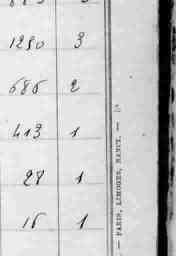 1290 3
686 2
413 1
28 1
16 1
— PARIS, LIMOGES, NANCY. —